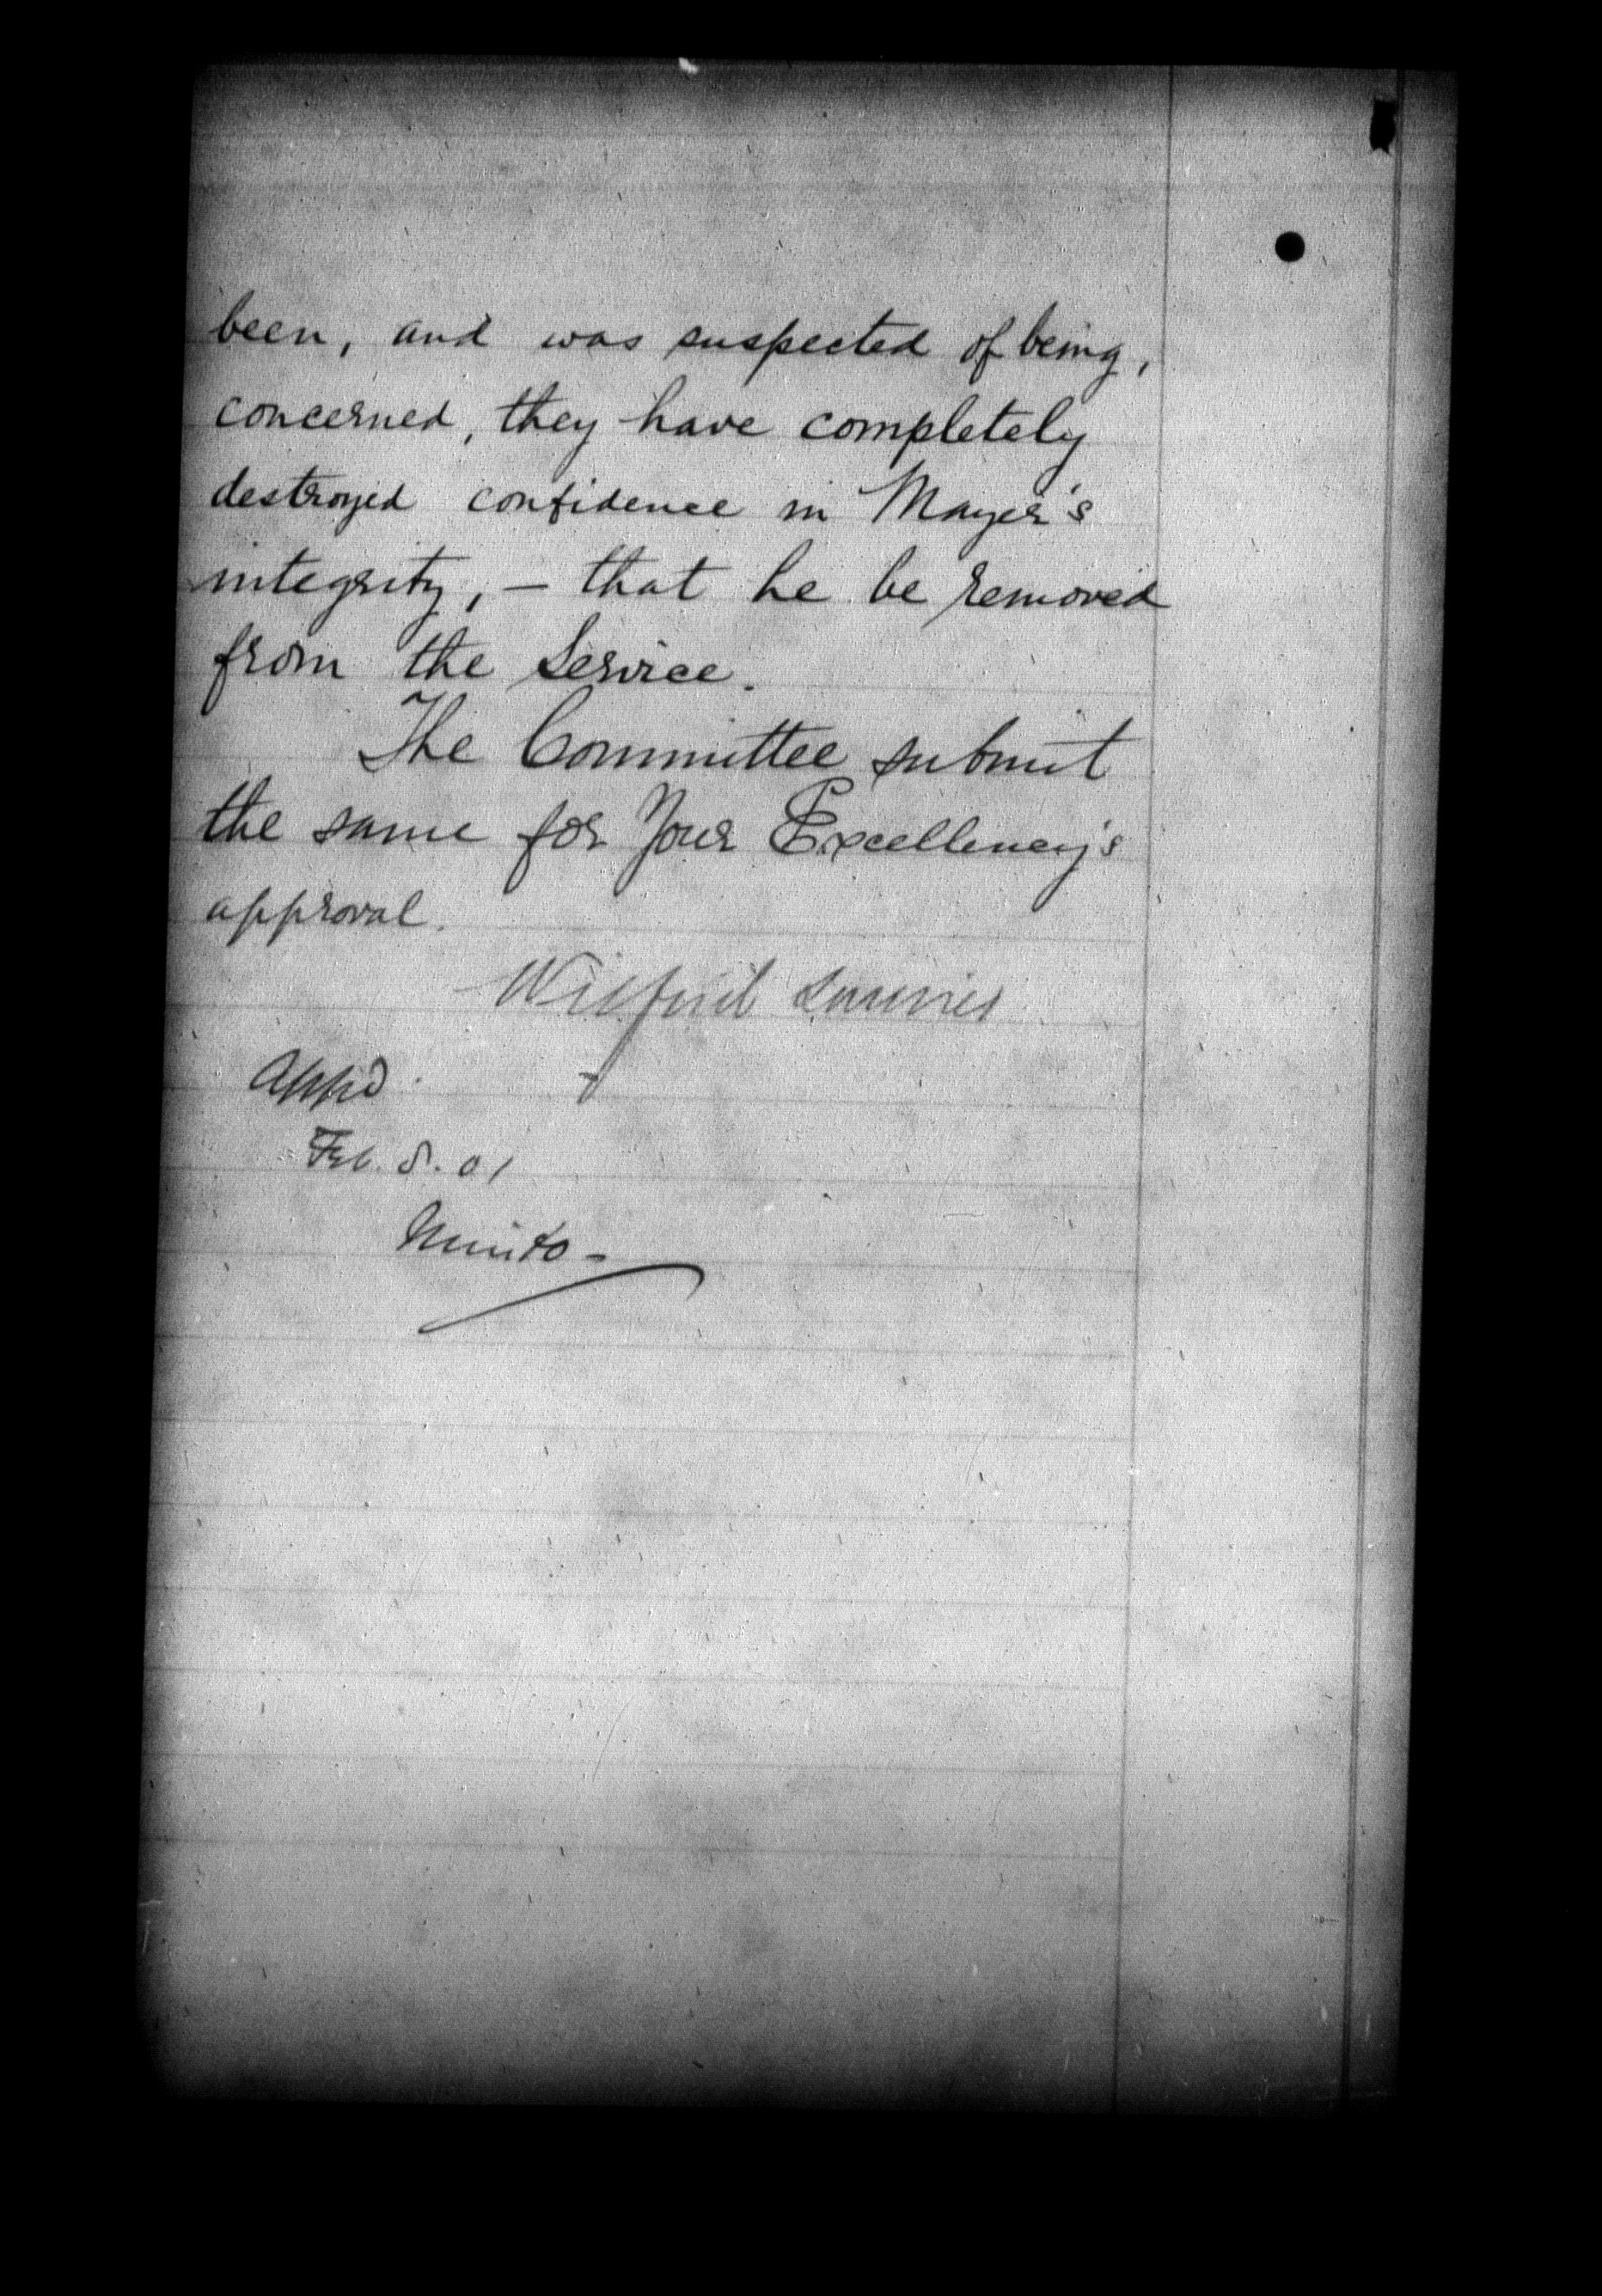 been, and was suspected of being,
concerned, they have completely
destroyed confidence in Mayer's
integrity, – that he be removed
from the Service.
The Committee submit
the same for Your Excellency's
approval.
Wilfrid Laurier
Appd.
Feb. 8. 01
Minto –